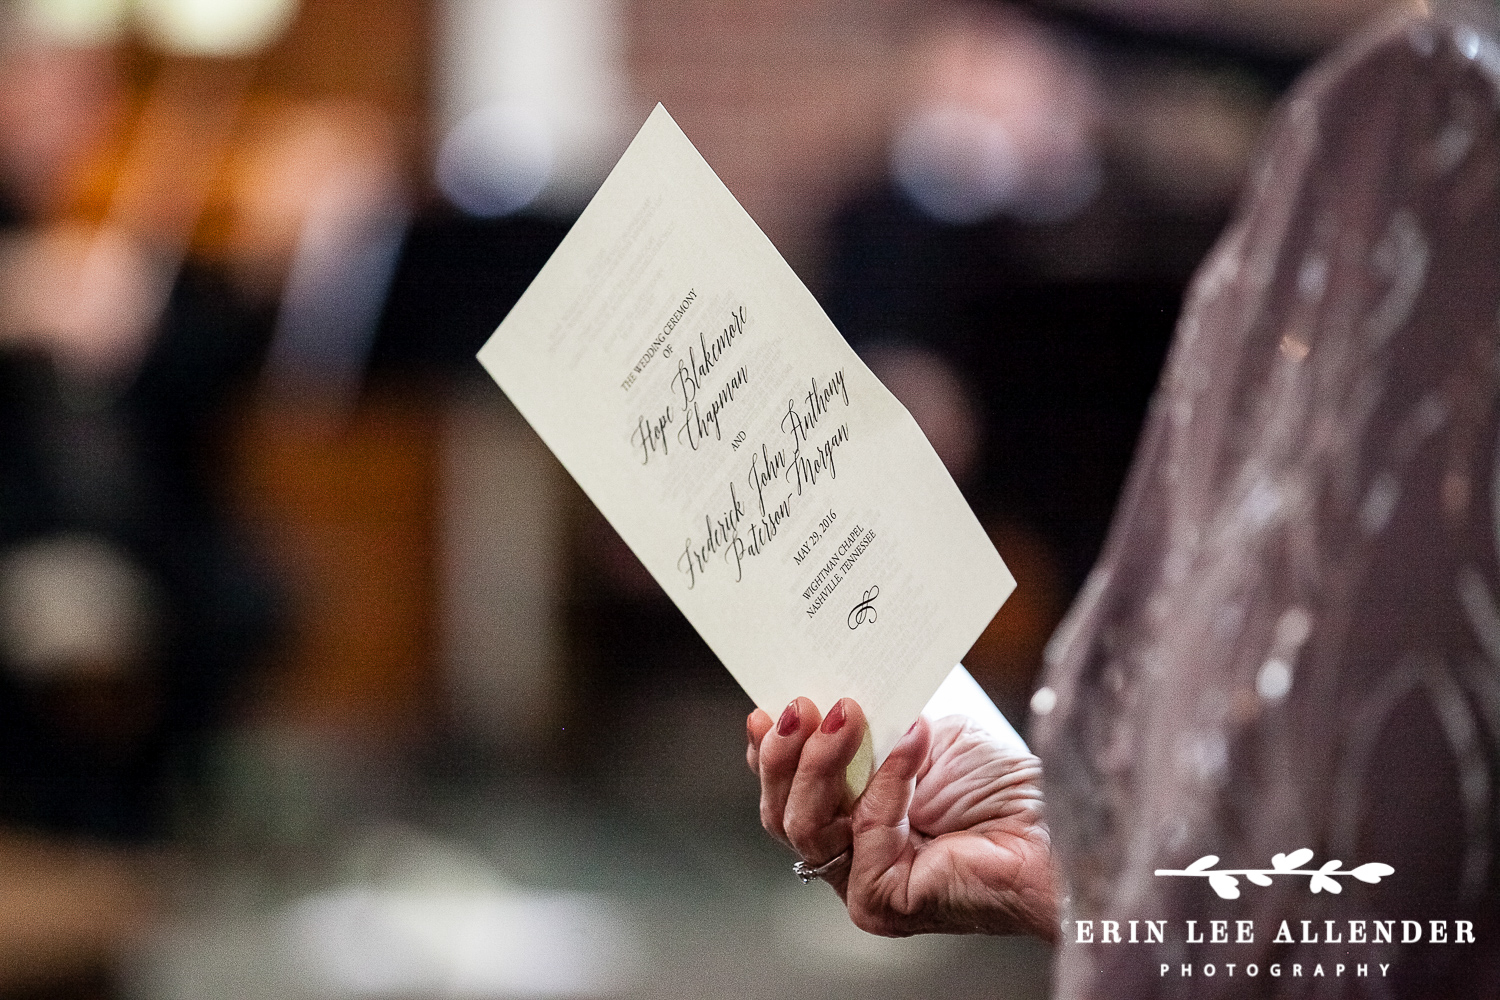 THE WEDDING CEREMONY
OF
Hope Blakemore
Chapman
AND
Frederick John Anthony
Paterson-Morgan
MAY 29, 2016
WIGHTMAN CHAPEL
NASHVILLE, TENNESSEE
ERIN LEE ALLENDER
PHOTOGRAPHY